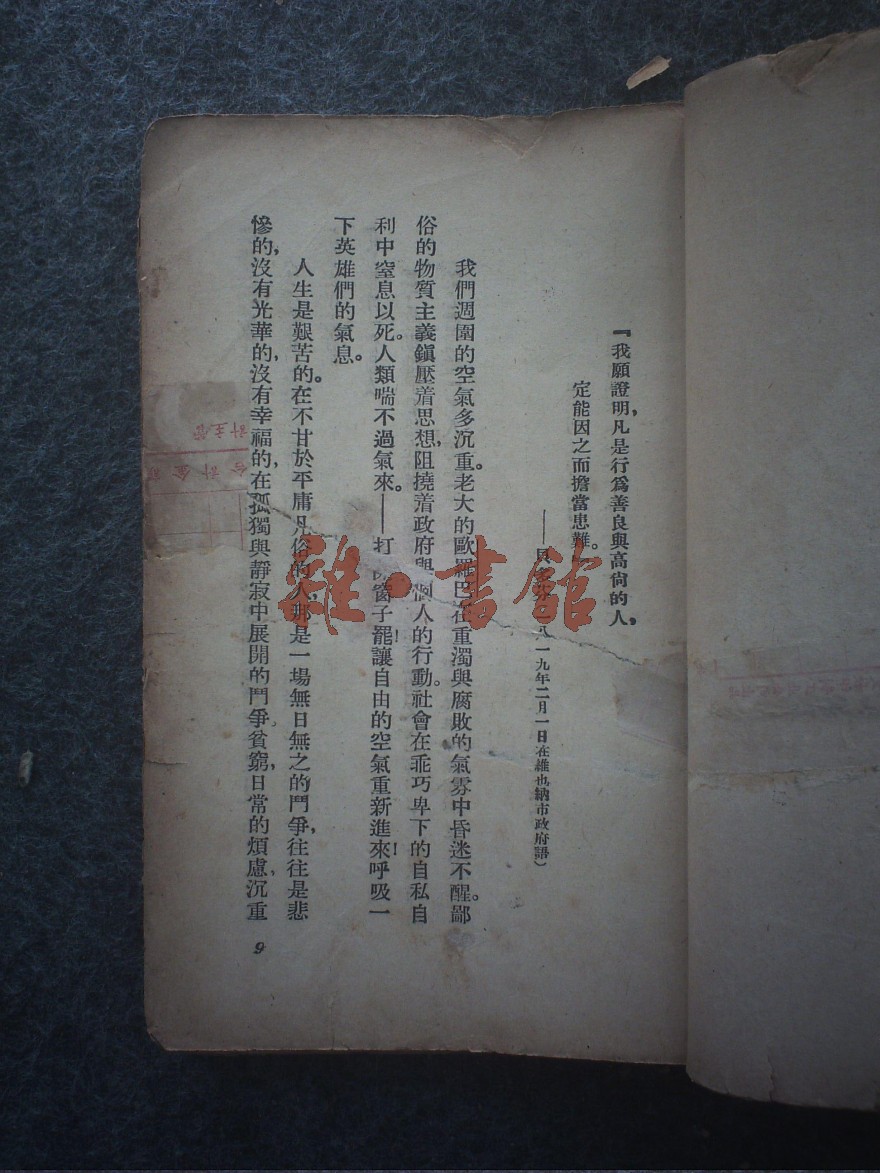 『我願證明，凡是行爲善良與高尙的人，
定能因之而擔當患難。
——貝 八一九年二月一日在維也納市政府語）
我們週圍的空氣多沉重。老大的歐羅巴在重濁與腐敗的氣雰中昏迷不醒。鄙
俗的物質主義鎭壓着思想，阻撓着政府與個人的行動。社會在乖巧卑下的自私自
利中窒息以死。人類喘不過氣來。——打 窗子罷！讓自由的空氣重新進來！呼吸一
下英雄們的氣息。
人生是艱苦的。在不甘於平庸凡俗的人，那是一場無日無之的鬥爭，往往是悲
慘的，沒有光華的，沒有幸福的，在孤獨與靜寂中展開的鬥爭。貧窮，日常的煩慮，沉重
9
雜·書館